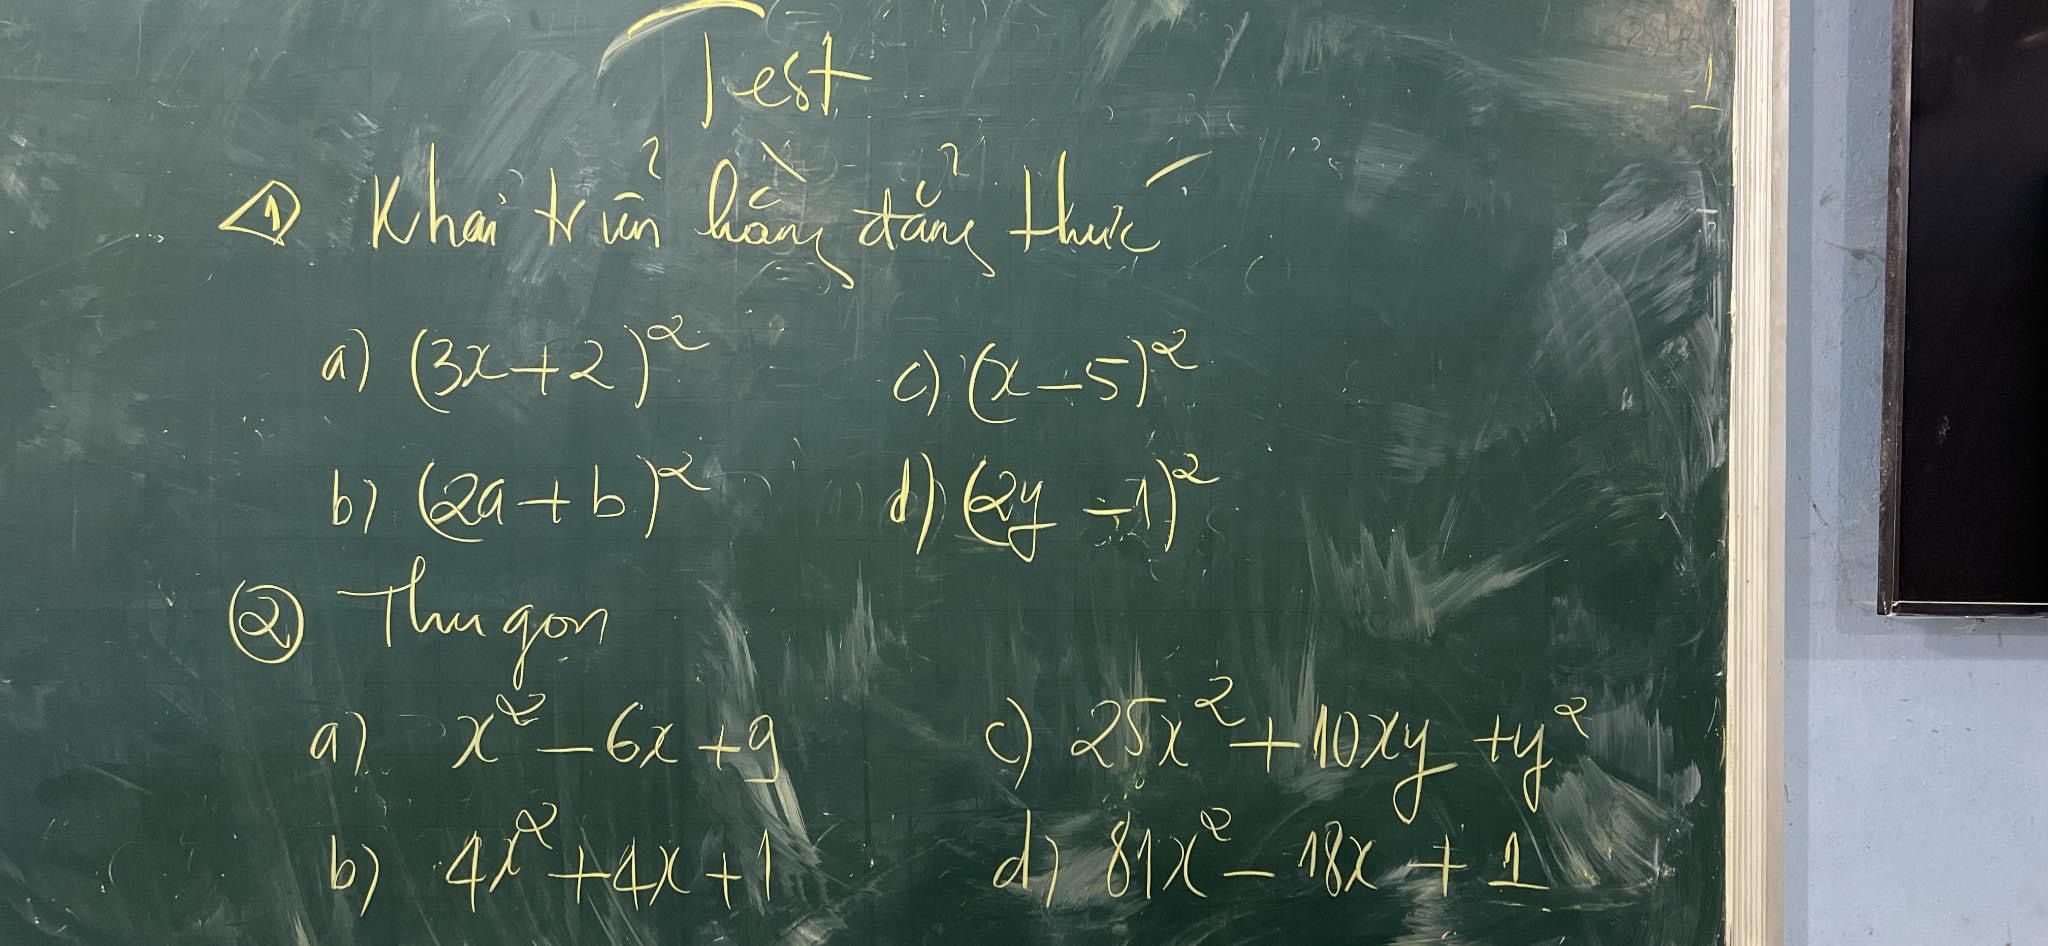 Test
1 Khai triển hằng đẳng thức
a) (3x+2)² c) (x-5)²
b) (2a+b)² d) (2y-1)²
2 Thu gọn
a) x²-6x+9 c) 25x²+10xy+y²
b) 4x²+4x+1 d) 81x²-18x+1